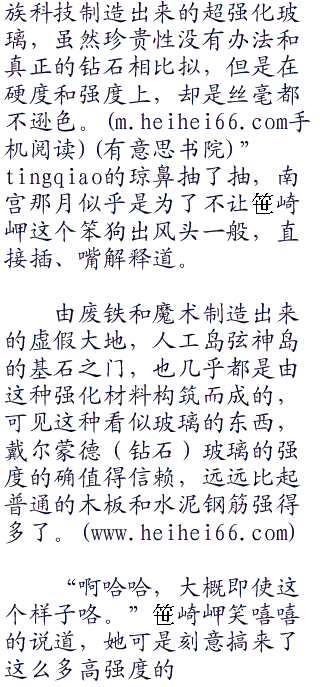 族科技制造出来的超强化玻
璃，虽然珍贵性没有办法和
真正的钻石相比拟，但是在
硬度和强度上，却是丝毫都
不逊色。(m.heihei66.com手
机阅读)(有意思书院)”
tingqiao的琼鼻抽了抽，南
宫那月似乎是为了不让笹崎
岬这个笨狗出风头一般，直
接插、嘴解释道。
由废铁和魔术制造出来
的虚假大地，人工岛弦神岛
的基石之门，也几乎都是由
这种强化材料构筑而成的，
可见这种看似玻璃的东西，
戴尔蒙德（钻石）玻璃的强
度的确值得信赖，远远比起
普通的木板和水泥钢筋强得
多了。(www.heihei66.com)
“啊哈哈，大概即使这
个样子咯。”笹崎岬笑嘻嘻
的说道，她可是刻意搞来了
这么多高强度的